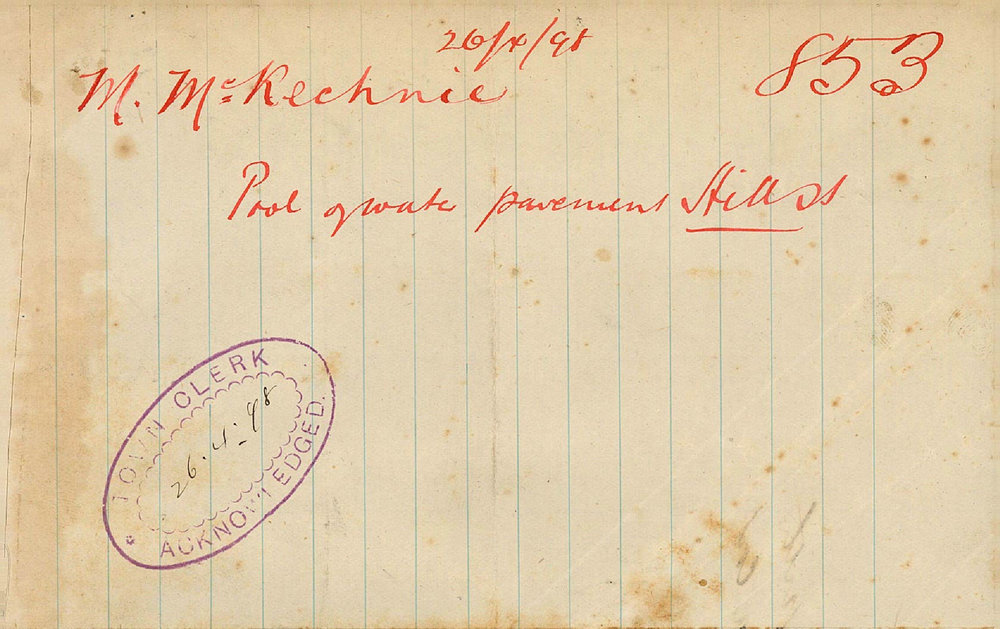 26/4/98
853
M. McKechnie
Pool of water pavement Hill St
TOWN CLERK
26.4.98
ACKNOWLEDGED.